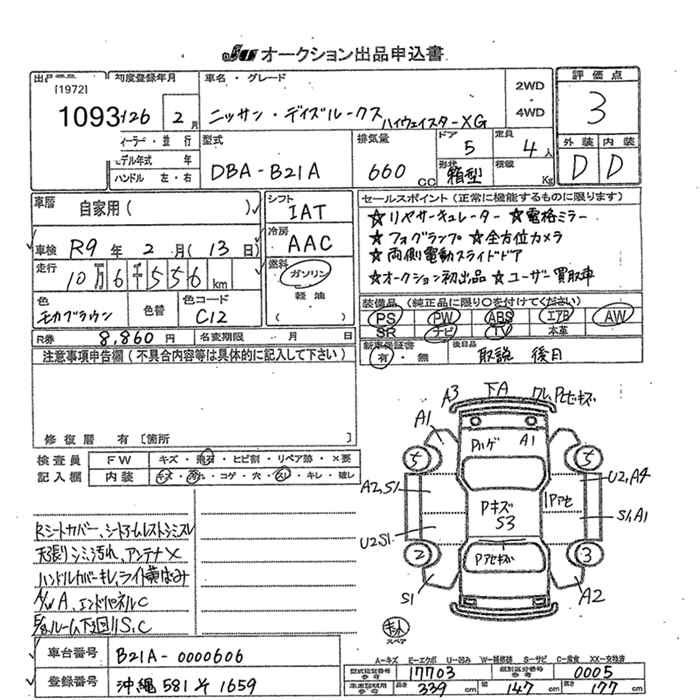 JU オークション出品申込書
初度登録年月
車名・グレード
2WD
4WD
評価点
[1972]
1093
26
2月
ニッサン・デイズルークス ハイウェイスターXG
3
ィーラー・並行
型式
排気量
ドア
定員
外装
内装
デル年式
年
DBA-B21A
660
CC
5
4人
ハンドル
左・右
形状
箱型
積載
Kg
D
D
車歴
自家用( )
シフト
IAT
セールスポイント(正常に機能するものに限ります)
☆リヤサーキュレーター ☆電格ミラー
車検
R9年2月(13日)
冷房
AAC
☆フォグランプ ☆全方位カメラ
走行
10万6千556km
燃料
ガソリン
軽油
( )
☆両側電動スライドドア
☆オークション初出品 ☆ユーザー買取車
色
モカブラウン
色替
色コード
C12
装備品(純正品に限り○を付けてください)
PS
PW
ABS
エアB
AW
SR
ナビ
TV
本革
R券
8,860円
名変期限
月
日
新車保証書
有・無
後日品
取説 後日
注意事項申告欄(不具合内容等は具体的に記入して下さい)
修復歴 有[箇所 ]
検査員
記入欄
FW
キズ・飛石・ヒビ割・リペア跡・×要
内装
キズ・汚れ・コゲ・穴・スレ・キレ・破レ
A3
下A
A1
Pハゲ
A1
5
5
A2,S1
U2,A4
Pキズ
S3
Pアセ
S1,A1
U2S1
2
3
Pアセキズ
S1
A2
Rシートカバー、シートアームレストシミスレ
天張りシミ汚れ、アンテナ×
ハンドルカバーキレ、ライト黄ばみ
A/W A、エンドパネルC
下廻りS,C
スペア
車台番号
B21A-0000606
登録番号
沖縄 581 そ 1659
A-キズ E-エクボ U-凹み W-補修跡 S-サビ C-腐食 XX-交換済
型式指定番号
17703
類別区分番号
0005
長さ
339
cm
幅
147
cm
高さ
177
cm